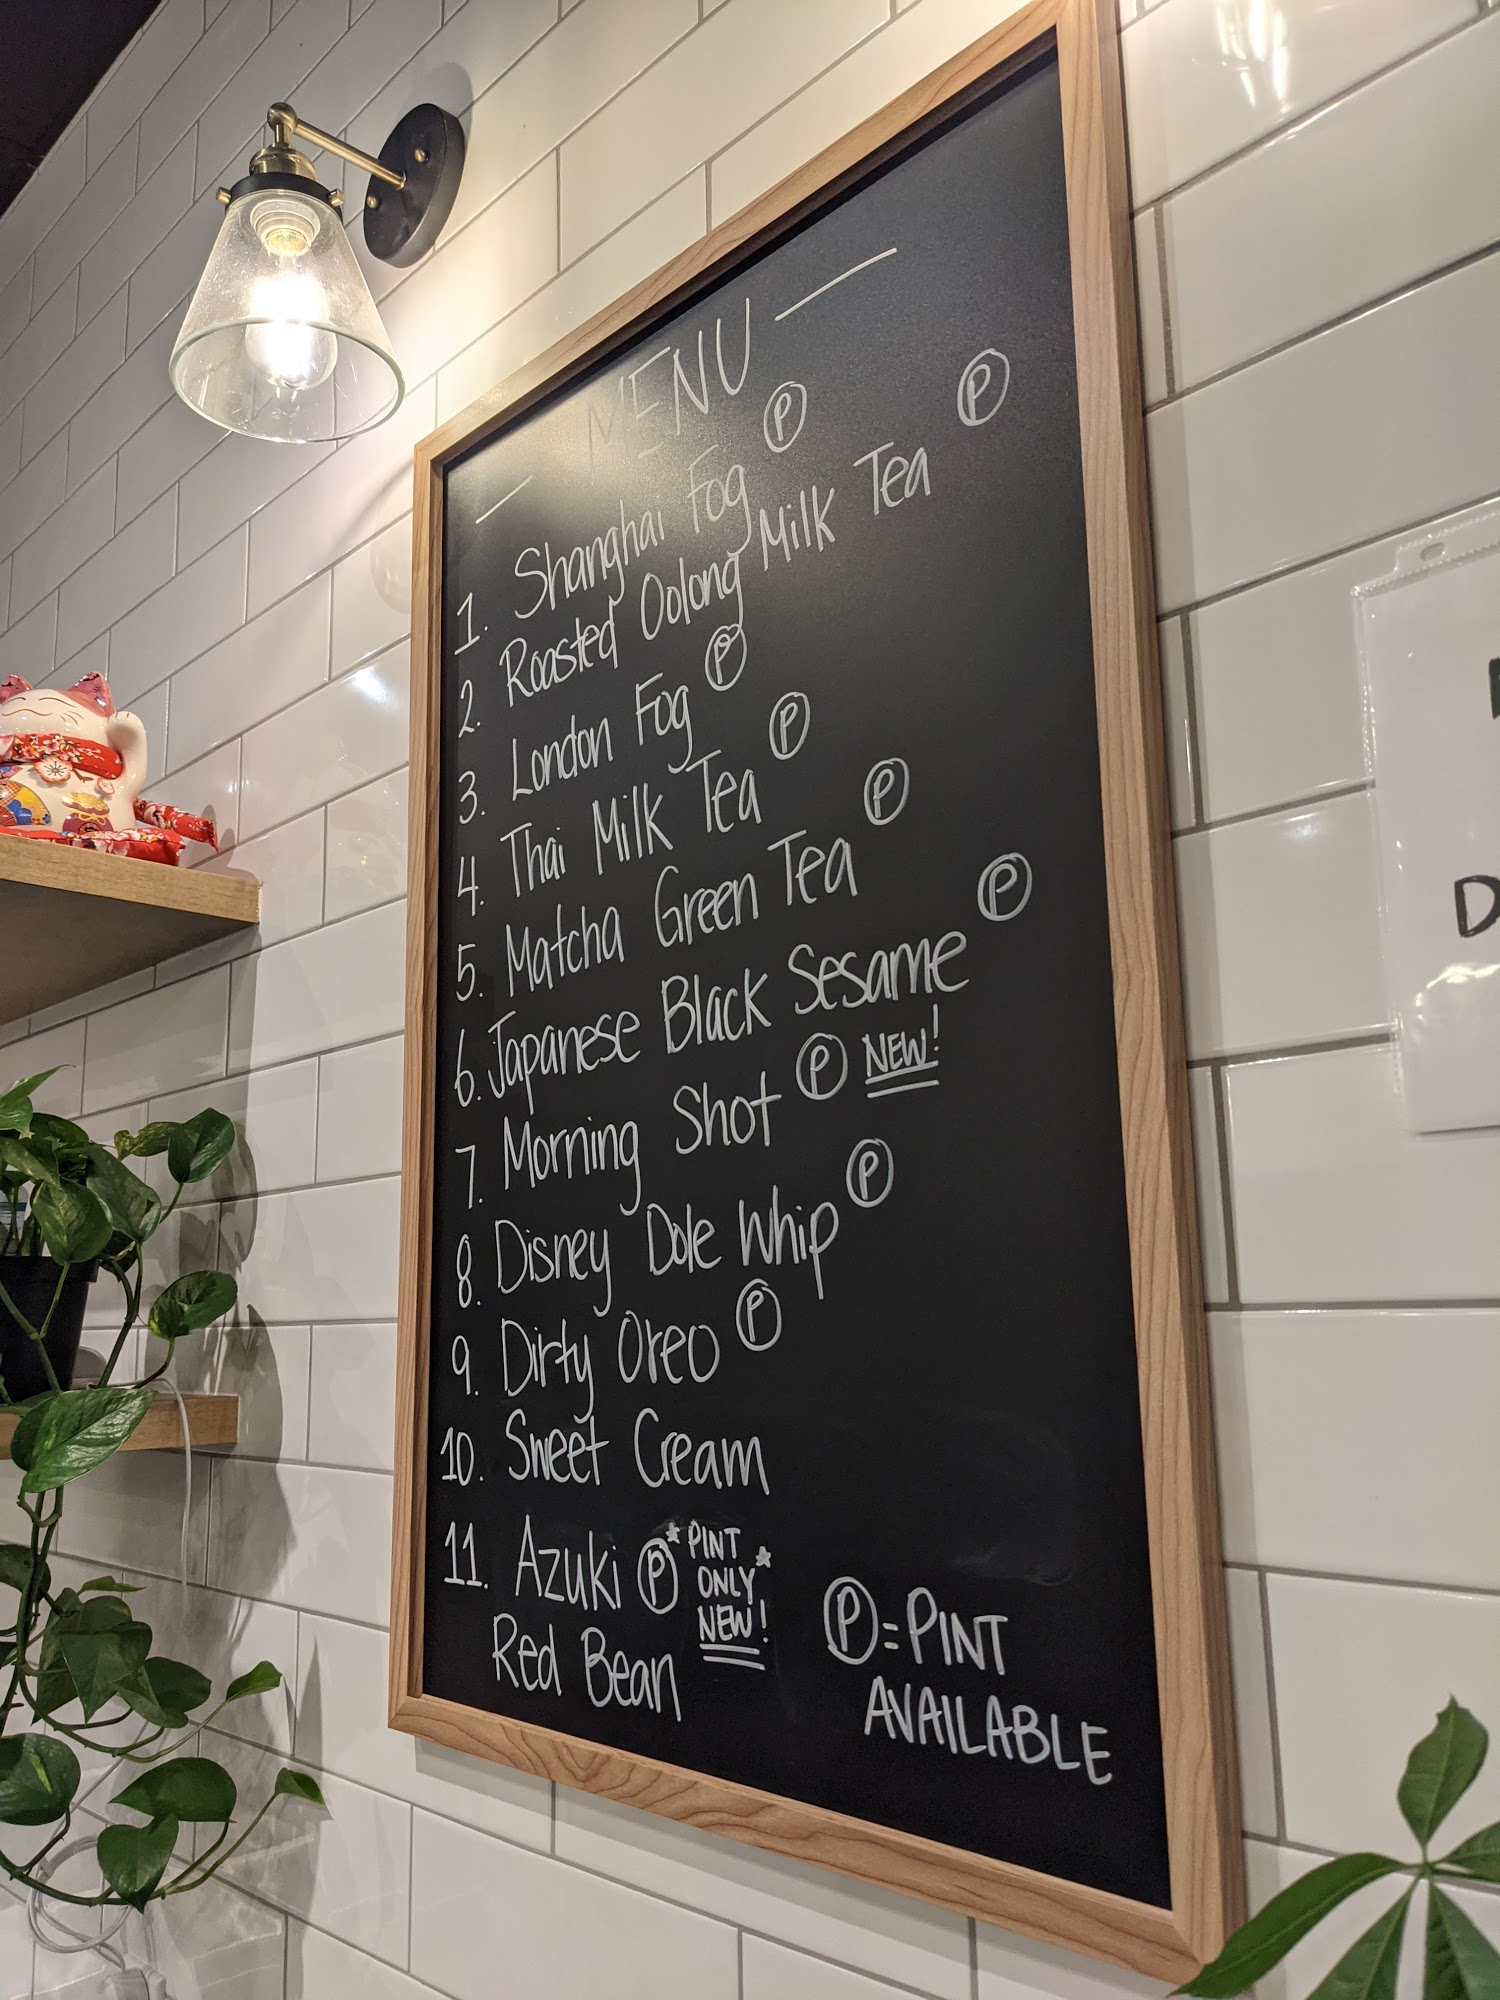 — MENU —
1. Shanghai Fog Ⓟ
2. Roasted Oolong Milk Tea Ⓟ
3. London Fog Ⓟ
4. Thai Milk Tea Ⓟ
5. Matcha Green Tea Ⓟ
6. Japanese Black Sesame Ⓟ
7. Morning Shot Ⓟ NEW!
8. Disney Dole Whip Ⓟ
9. Dirty Oreo Ⓟ
10. Sweet Cream
11. Azuki Ⓟ
Red Bean
* PINT
ONLY *
NEW!
Ⓟ = PINT
AVAILABLE